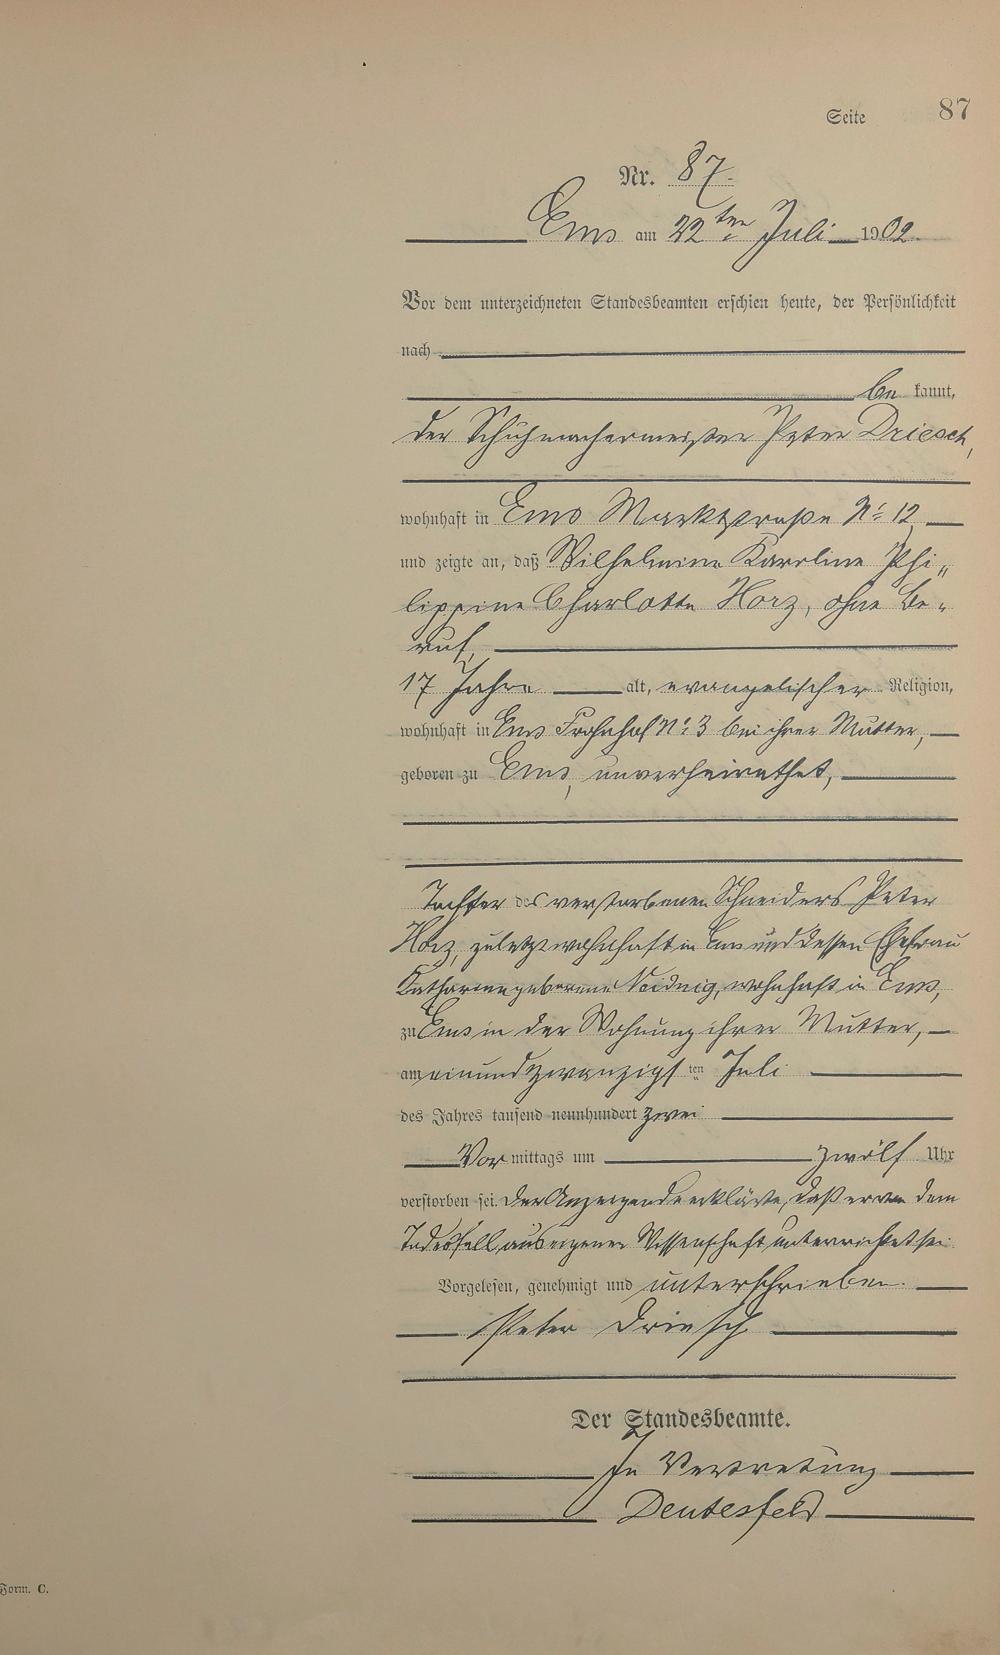 Seite 87
Nr. 87.
Ems am 22ten Juli 1902.
Vor dem unterzeichneten Standesbeamten erschien heute, der Persönlichkeit
nach
be kannt,
der Schuhmachermeister Peter Driesch,
wohnhaft in Ems Marktstraße No 12
und zeigte an, daß Wilhelmine Karoline Phi„
lippine Charlotte Horz, ohne Be-
ruf,
17 Jahre alt, evangelischer Religion,
wohnhaft in Ems Frohnhof No 3 bei ihrer Mutter,
geboren zu Ems, unverheirathet,
Tochter des verstorbenen Schneiders Peter
Horz, zuletzt wohnhaft in Ems und dessen Ehefrau
Katharine geborene wohnhaft in Ems,
zu Ems in der Wohnung ihrer Mutter,
am einundzwanzigs ten Juli
des Jahres tausend neunhundert zwei
Vor mittags um zwölf Uhr
verstorben sei. Der Anzeigende erklärte, daß er von dem
Todesfall aus eigener Wissenschaft unterrichtet sei.
Vorgelesen, genehmigt und unterschrieben.
Peter Driesch
Der Standesbeamte.
In Vertretung
Deutesfeld
Form. C.